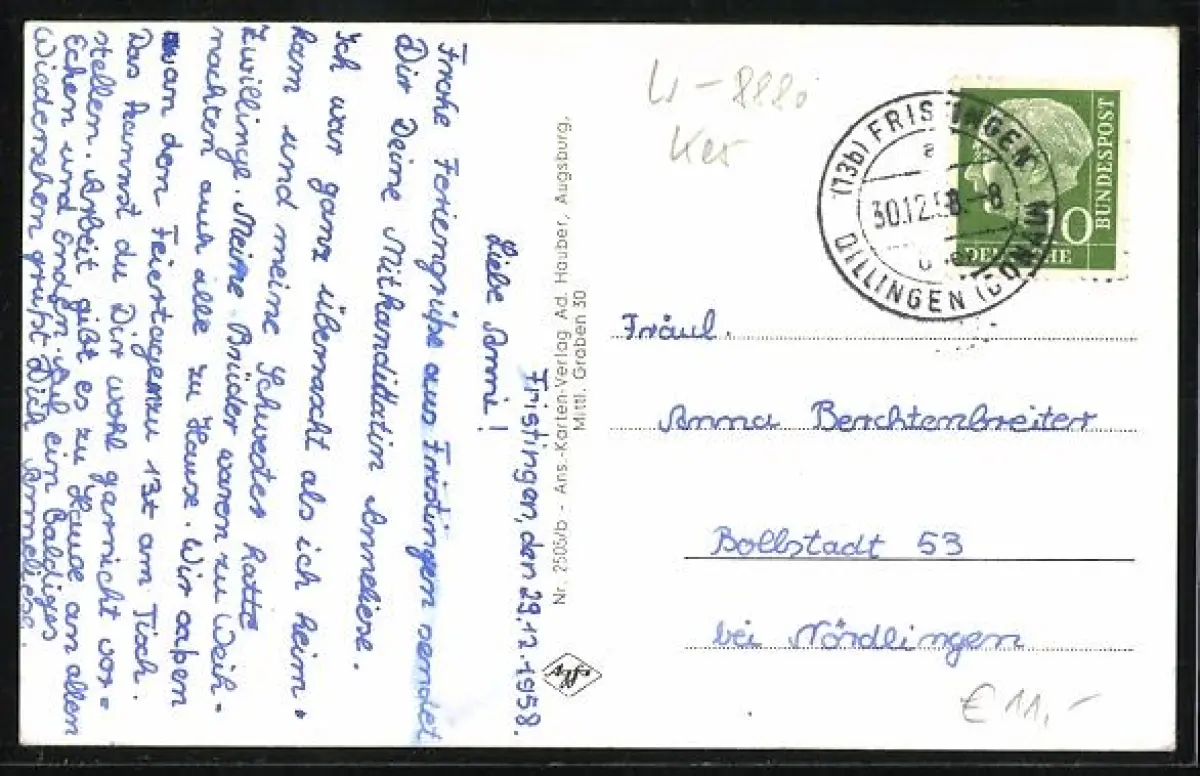 Fristingen, den 29.12.1958.
Liebe Anni!
Frohe Feriengrüße aus Fristingen sendet
Dir Deine Mitkandittatin Anneliese.
Ich war ganz überrascht als ich heim-
kam und meine Schwester hatte
Zwillinge. Meine Brüder waren zu Weih-
nachten auch alle zu Hause. Wir saßen
an den Feiertagen zu 13t am Tisch.
Das kannst du Dir wohl garnicht vor=
stellen. Arbeit gibt es zu Hause an allen
Echen und Enden. Auf ein Baldiges
Wiedersehen grüßt Dich Anneliese.
Nr. 2505/b - Ans.-Karten-Verlag Ad. Hauber, Augsburg,
Mittl. Graben 30
(13b) FRISTINGEN
a
30.12.58.-8
DILLINGEN (DONAU)
DEUTSCHE
BUNDESPOST
Fräul.
Anna Berchtenbreiter
Bollstadt 53
bei Nördlingen
€ 11,-